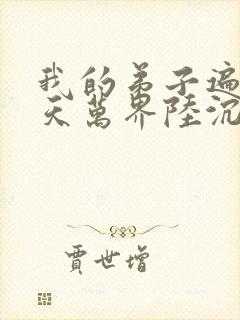 我的弟子遍
天萬界陸沉
賈世增